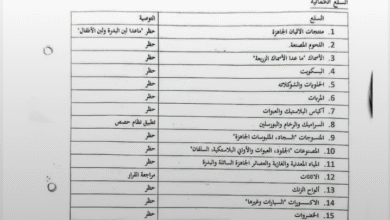 السلع الكمالية
السلع التوصية
1. منتجات الألبان الجاهزة حظر "ماعدا لبن البدرة ولبن الأطفال"
2. اللحوم المصنعة. حظر
3. الأسماك "ما عدا الأسماك الزريعة" حظر
4. البسكويت حظر
5. الحلويات والشوكلاته حظر
6. المربات حظر
7. أكياس البلاستيك والعبوات حظر
8. السراميك والرخام والبورسلين تطبيق نظام حصص
9. المنسوجات "السجاد، الملبوسات الجاهزة" حظر
10. المصنوعات "الجلود، العبوات والأواني البلاستيكية، السلفان" حظر
11. المياه المعدنية والغازية والعصائر الجاهزة السائلة والبدرة حظر
12. الاثاثات مراجعة القرار
13. ألواح الزنك حظر
14. الاكسسورات "السيارات وغيرها" حظر
15. الخضروات حظر